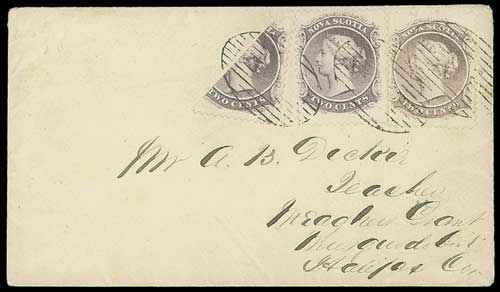 NOVA SCOTIA
NOVA SCOTIA
TWO CENTS
TWO CENTS
TWO CENTS
Mr A. B. Decker
Teacher
Meaghers Grant
Musquodoboit
Halifax Co